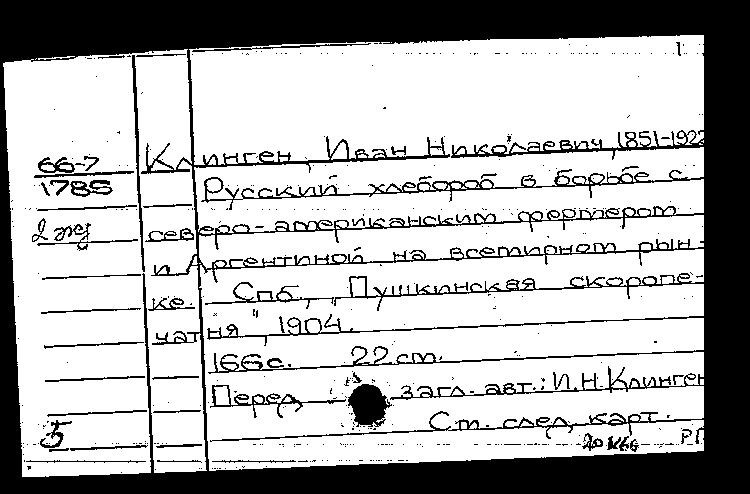 66-7
1785
Клинген, Иван Николаевич, 1851-1922
Русский хлебороб в борьбе с
2 экз
северо-американским фермером
и Аргентиной на всемирном рын-
ке. Спб., "Пушкинская скоропе-
чатня", 1904.
166 с. 22 см.
Перед загл. авт.: И.Н. Клинген
Ст. след. карт.
5